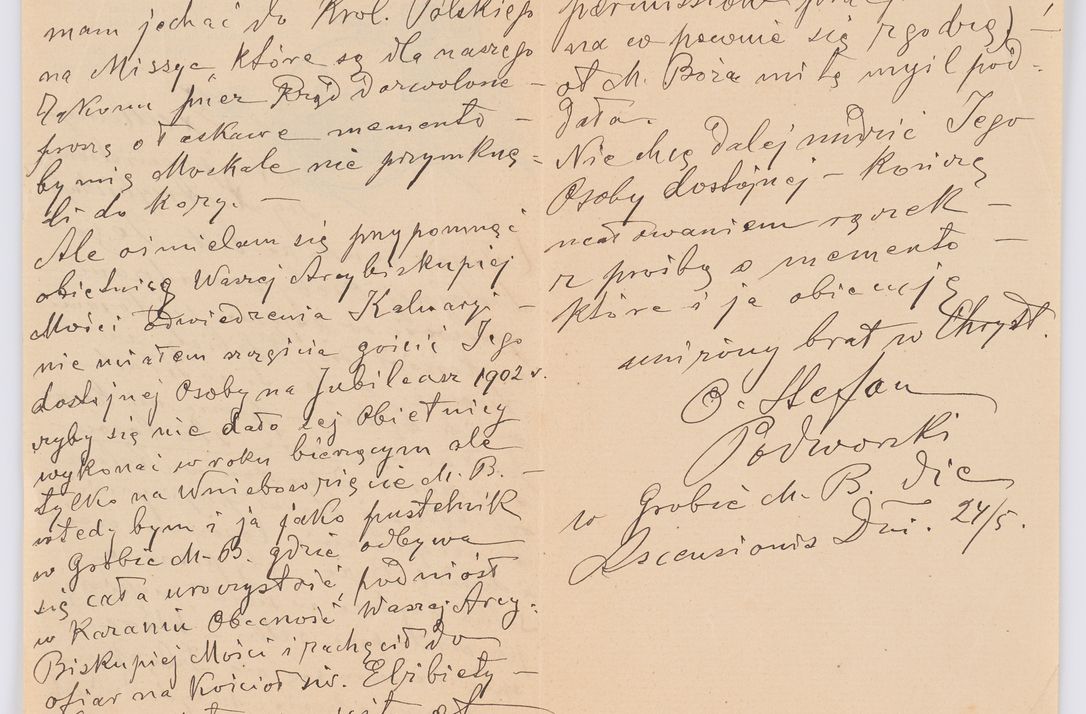 mam jechać do Król. Polskiego
na Missye które są dla naszego
Zakonu przez Rząd dozwolone –
proszę o łaskawe memento –
by mię Moskale nie przymknę-
li do kozy. –
Ale ośmielam się przypomnąć
obietnicę Waszej Arcybiskupiej
Mości odwiedzenia Kalwaryi –
nie miałem szczęścia gościć Jego
dostojnej Osoby na Jubileusz 1902 r.
czyby się nie dało tej Obietnicy
wykonać w roku bieżącym ale
tylko na Wniebowzięcie M. B. –
wtedy bym i ja jako pustelnik
w Grobie M. B. gdzie odbywa
się cała uroczystość podniósł
w Kazaniu Obecność Waszej Arcy-
Biskupiej Mości i zachęcił do
ofiar na Kościół św. Elżbiety –
na co pewnie się zgodzą) –
ot M. Boża mi tę myśl pod-
dała.
Nie chcę dalej nudzić Jego
Osoby dostojnej – kończę
ucałowaniem rączek –
z prośbą o memento –
które i ja obiecuję
uniżony brat w Chryst.
O. Stefan
Podworski
w Grobie M. B. die
Ascensionis Dni. 24/5.